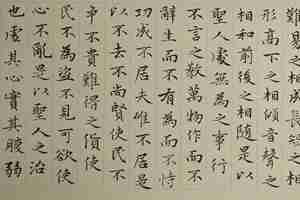 難易之相成長短之相
形高下之相傾音聲之
相和前後之相隨是以
聖人處無為之事行
不言之教萬物作而不
辭生而不有為而不恃
功成不居夫唯不居是
以不去不尚賢使民不
爭不貴難得之貨使
民不為盜不見可欲使
心不亂是以聖人之治
也虛其心實其腹弱